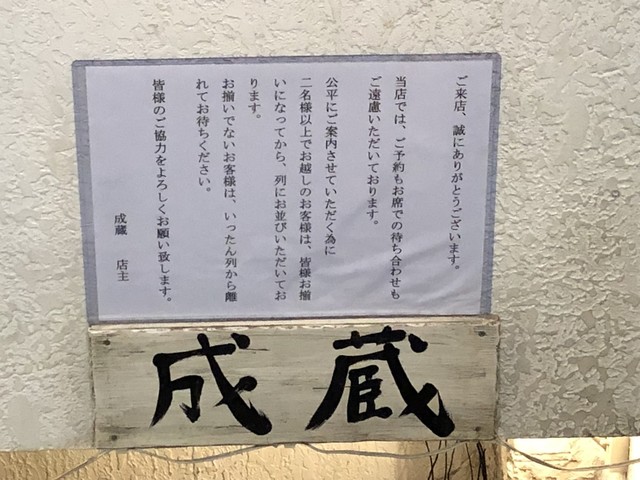 ご来店、誠にありがとうございます。
当店では、ご予約もお席での待ち合わせも
ご遠慮いただいております。
公平にご案内させていただく為に
二名様以上でお越しのお客様は、皆様お揃
いになってから、列にお並びいただいてお
ります。
お揃いでないお客様は、いったん列から離
れてお待ちください。
皆様のご協力をよろしくお願い致します。
成蔵 店主
成蔵